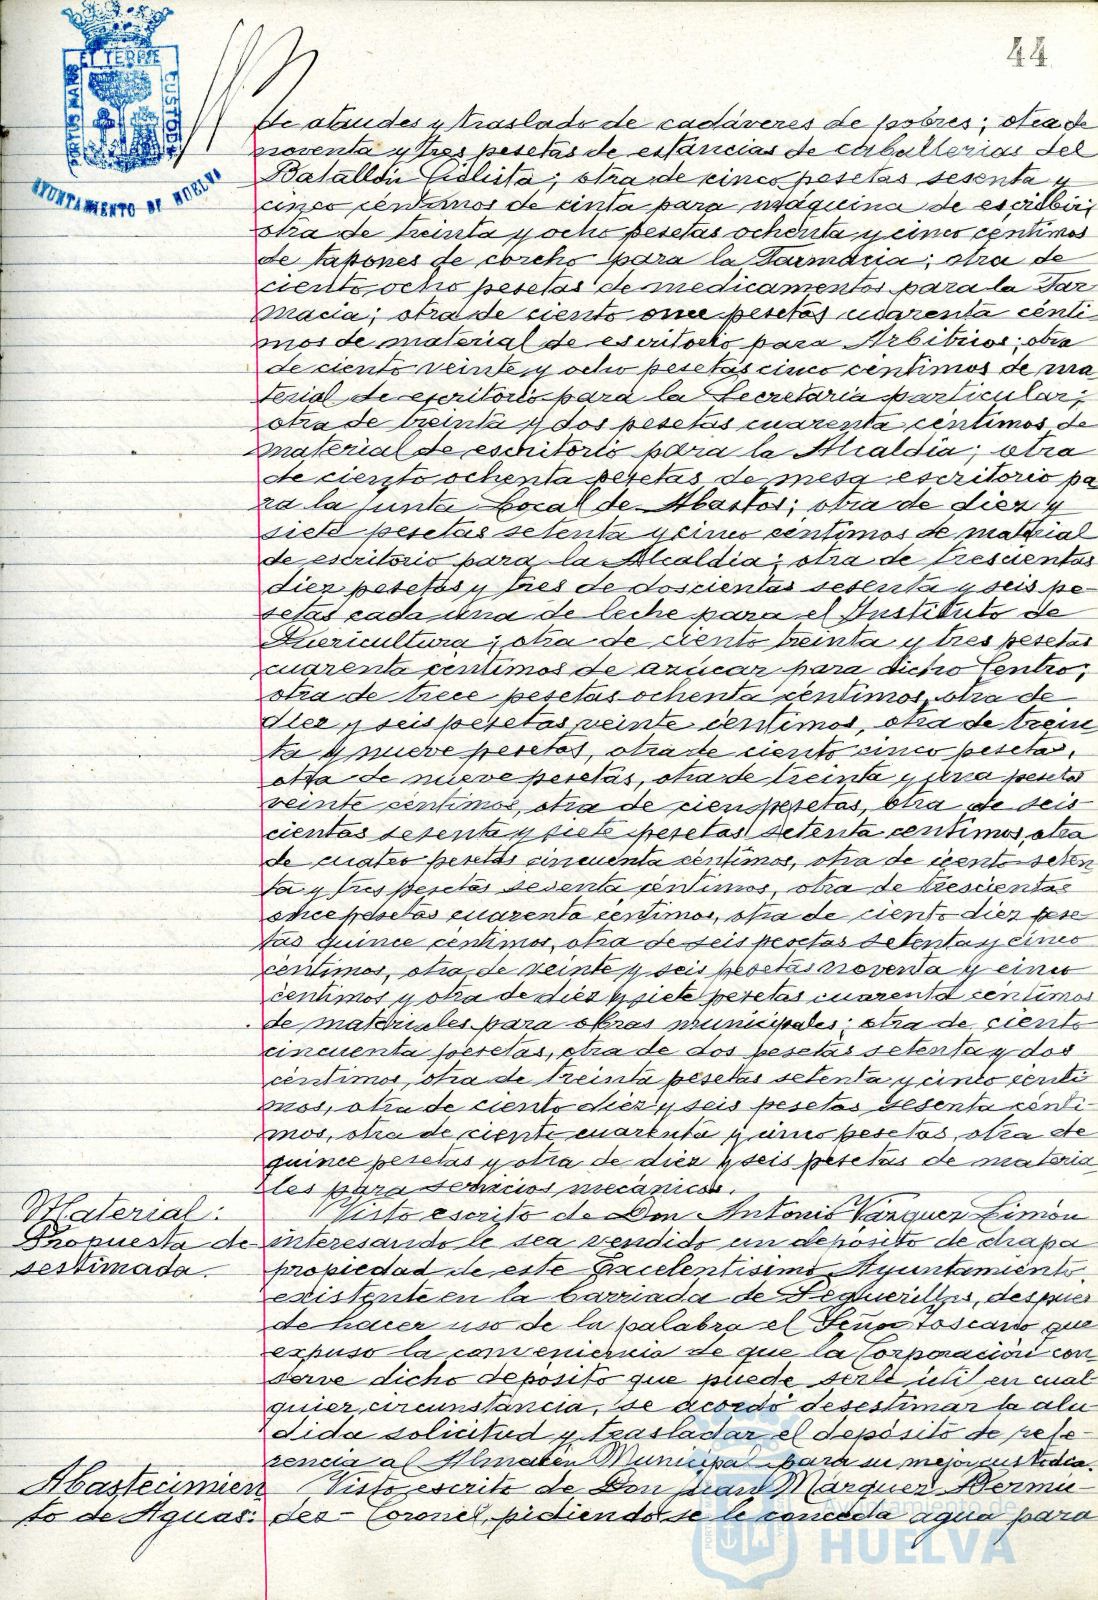 44
PORTUS MARIS ET TERRÆ CUSTODIA
AYUNTAMIENTO DE HUELVA
de ataudes y traslado de cadáveres de pobres; otra de
noventa y tres pesetas de estancias de caballerias del
Batallón Ciclista; otra de cinco pesetas sesenta y
cinco céntimos de cinta para máquina de escribir;
otra de treinta y ocho pesetas ochenta y cinco céntimos
de tapones de corcho para la Farmacia; otra de
ciento ocho pesetas de medicamentos para la Far
macia; otra de ciento once pesetas cuarenta cénti
mos de material de escritorio para Arbitrios; otra
de ciento veinte y ocho pesetas cinco céntimos de ma
terial de escritorio para la Secretaria particular;
otra de treinta y dos pesetas cuarenta céntimos de
material de escritorio para la Alcaldia; otra
de ciento ochenta pesetas de mesa escritorio pa
ra la Junta Local de Abastos; otra de diez y
siete pesetas setenta y cinco céntimos de material
de escritorio para la Alcaldia; otra de trescientas
diez pesetas y tres de doscientas sesenta y seis pe-
setas cada una de leche para el Instituto de
Puericultura; otra de ciento treinta y tres pesetas
cuarenta céntimos de azúcar para dicho Centro;
otra de trece pesetas ochenta céntimos, otra de
diez y seis pesetas veinte céntimos, otra de trein
ta y nueve pesetas, otra de ciento cinco pesetas,
otra de nueve pesetas, otra de treinta y una pesetas
veinte céntimos, otra de cien pesetas, otra de seis-
cientas sesenta y siete pesetas setenta céntimos, otra
de cuatro pesetas cincuenta céntimos, otra de ciento seten
ta y tres pesetas sesenta céntimos, otra de trescientas
once pesetas cuarenta céntimos, otra de ciento diez pese
tas quince céntimos, otra de seis pesetas setenta y cinco
céntimos, otra de veinte y seis pesetas noventa y cinco
céntimos y otra de diez y siete pesetas cuarenta céntimos
de materiales para obras municipales; otra de ciento
cincuenta pesetas, otra de dos pesetas setenta y dos
céntimos, otra de treinta pesetas setenta y cinco cénti
mos, otra de ciento diez y seis pesetas sesenta cénti-
mos, otra de ciento cuarenta y cinco pesetas, otra de
quince pesetas y otra de diez y seis pesetas de materia
les para servicios mecánicos.
Material:
Propuesta de
sestimada.
Visto escrito de Don Antonio Vazquez Limón
interesando le sea vendido un depósito de chapa
propiedad de este Excelentisimo Ayuntamiento
existente en la barriada de Peguerillas, despues
de hacer uso de la palabra el Señor Toscano que
expuso la conveniencia de que la Corporación con
serve dicho deposito que puede serle útil en cual
quier circunstancia, se acordó desestimar la alu-
dida solicitud y trasladar el depósito de refe-
rencia al Almacén Municipal para su mejor custodia.
Abastecimien
to de Aguas:
Visto escrito de Don Juan Márquez Bermú-
dez- Coronel, pidiendo se le conceda agua para
Ayuntamiento de
HUELVA